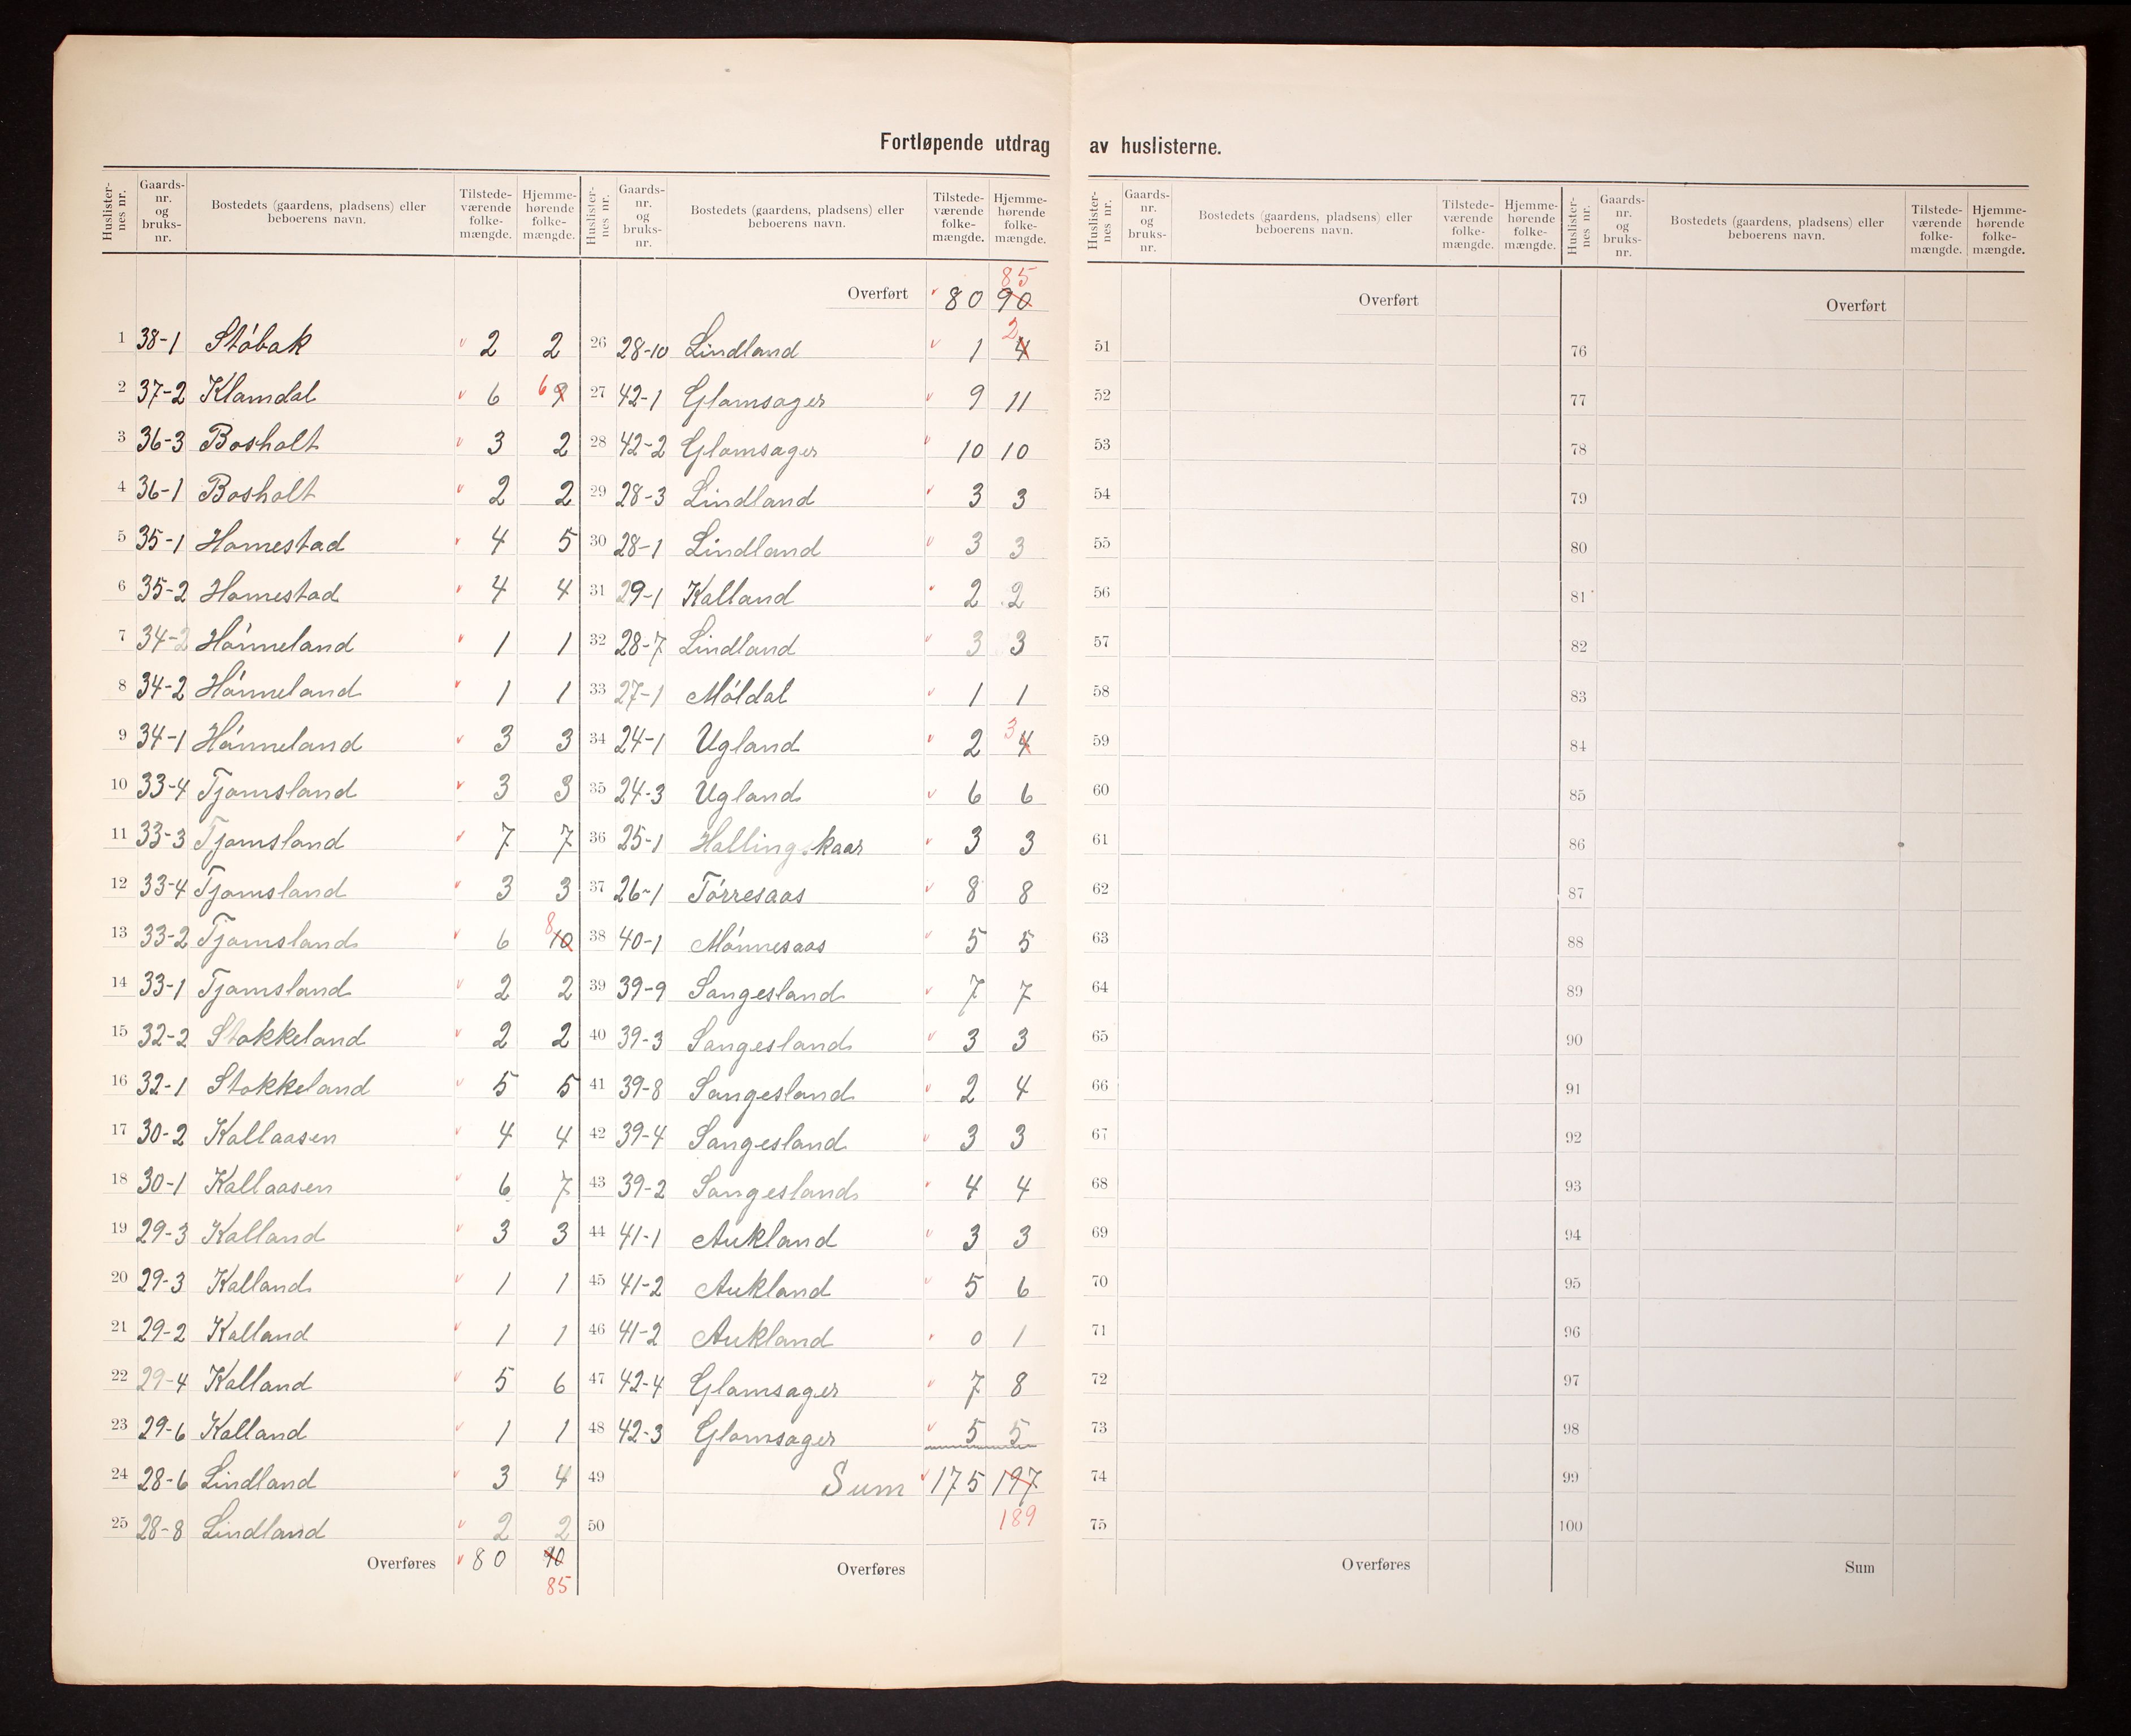 Fortløpende utdrag av huslisterne.
Huslisternes nr. Gaards-nr. og bruks-nr. Bostedets (gaardens, pladsens) eller beboerens navn. Tilstede-værende folke-mængde. Hjemme-hørende folke-mængde.
1 38-1 Støbak 2 2
2 37-2 Klamdal 6 6 9
3 36-3 Bosholt 3 2
4 36-1 Bosholt 2 2
5 35-1 Homestad 4 5
6 35-2 Homestad 4 4
7 34-2 Hønneland 1 1
8 34-2 Hønneland 1 1
9 34-1 Hønneland 3 3
10 33-4 Tjomsland 3 3
11 33-3 Tjomsland 7 7
12 33-4 Tjomsland 3 3
13 33-2 Tjomsland 6 8 10
14 33-1 Tjomsland 2 2
15 32-2 Stokkeland 2 2
16 32-1 Stokkeland 5 5
17 30-2 Kallaasen 4 4
18 30-1 Kallaasen 6 7
19 29-3 Kalland 3 3
20 29-3 Kalland 1 1
21 29-2 Kalland 1 1
22 29-4 Kalland 5 6
23 29-6 Kalland 1 1
24 28-6 Lindland 3 4
25 28-8 Lindland 2 2
Overføres 80 90
85
Huslisternes nr. Gaards-nr. og bruks-nr. Bostedets (gaardens, pladsens) eller beboerens navn. Tilstede-værende folke-mængde. Hjemme-hørende folke-mængde.
85
Overført 80 90
26 28-10 Lindland 1 2 4
27 42-1 Glomsager 9 11
28 42-2 Glomsager 10 10
29 28-3 Lindland 3 3
30 28-1 Lindland 3 3
31 29-1 Kalland 2 2
32 28-7 Lindland 3 3
33 27-1 Møldal 1 1
34 24-1 Ugland 2 3 4
35 24-3 Ugland 6 6
36 25-1 Hallingskaar 3 3
37 26-1 Tørresaas 8 8
38 40-1 Mønnesaas 5 5
39 39-9 Sangesland 7 7
40 39-3 Sangesland 3 3
41 39-8 Sangesland 2 4
42 39-4 Sangesland 3 3
43 39-2 Sangesland 4 4
44 41-1 Aukland 3 3
45 41-2 Aukland 5 6
46 41-2 Aukland 0 1
47 42-4 Glamsager 7 8
48 42-3 Glomsager 5 5
49 Sum 175 197
50 189
Overføres
Huslisternes nr. Gaards-nr. og bruks-nr. Bostedets (gaardens, pladsens) eller beboerens navn. Tilstede-værende folke-mængde. Hjemme-hørende folke-mængde.
Overført
51
52
53
54
55
56
57
58
59
60
61
62
63
64
65
66
67
68
69
70
71
72
73
74
75
Overføres
Huslisternes nr. Gaards-nr. og bruks-nr. Bostedets (gaardens, pladsens) eller beboerens navn. Tilstede-værende folke-mængde. Hjemme-hørende folke-mængde.
Overført
76
77
78
79
80
81
82
83
84
85
86
87
88
89
90
91
92
93
94
95
96
97
98
99
100
Sum